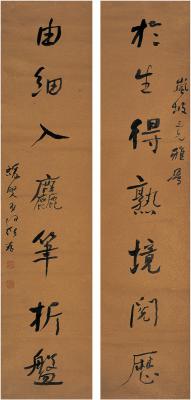 於生得熟境閱歷
嵐坡三兄雅屬
由細入麤筆折盤
蝯叟何紹基